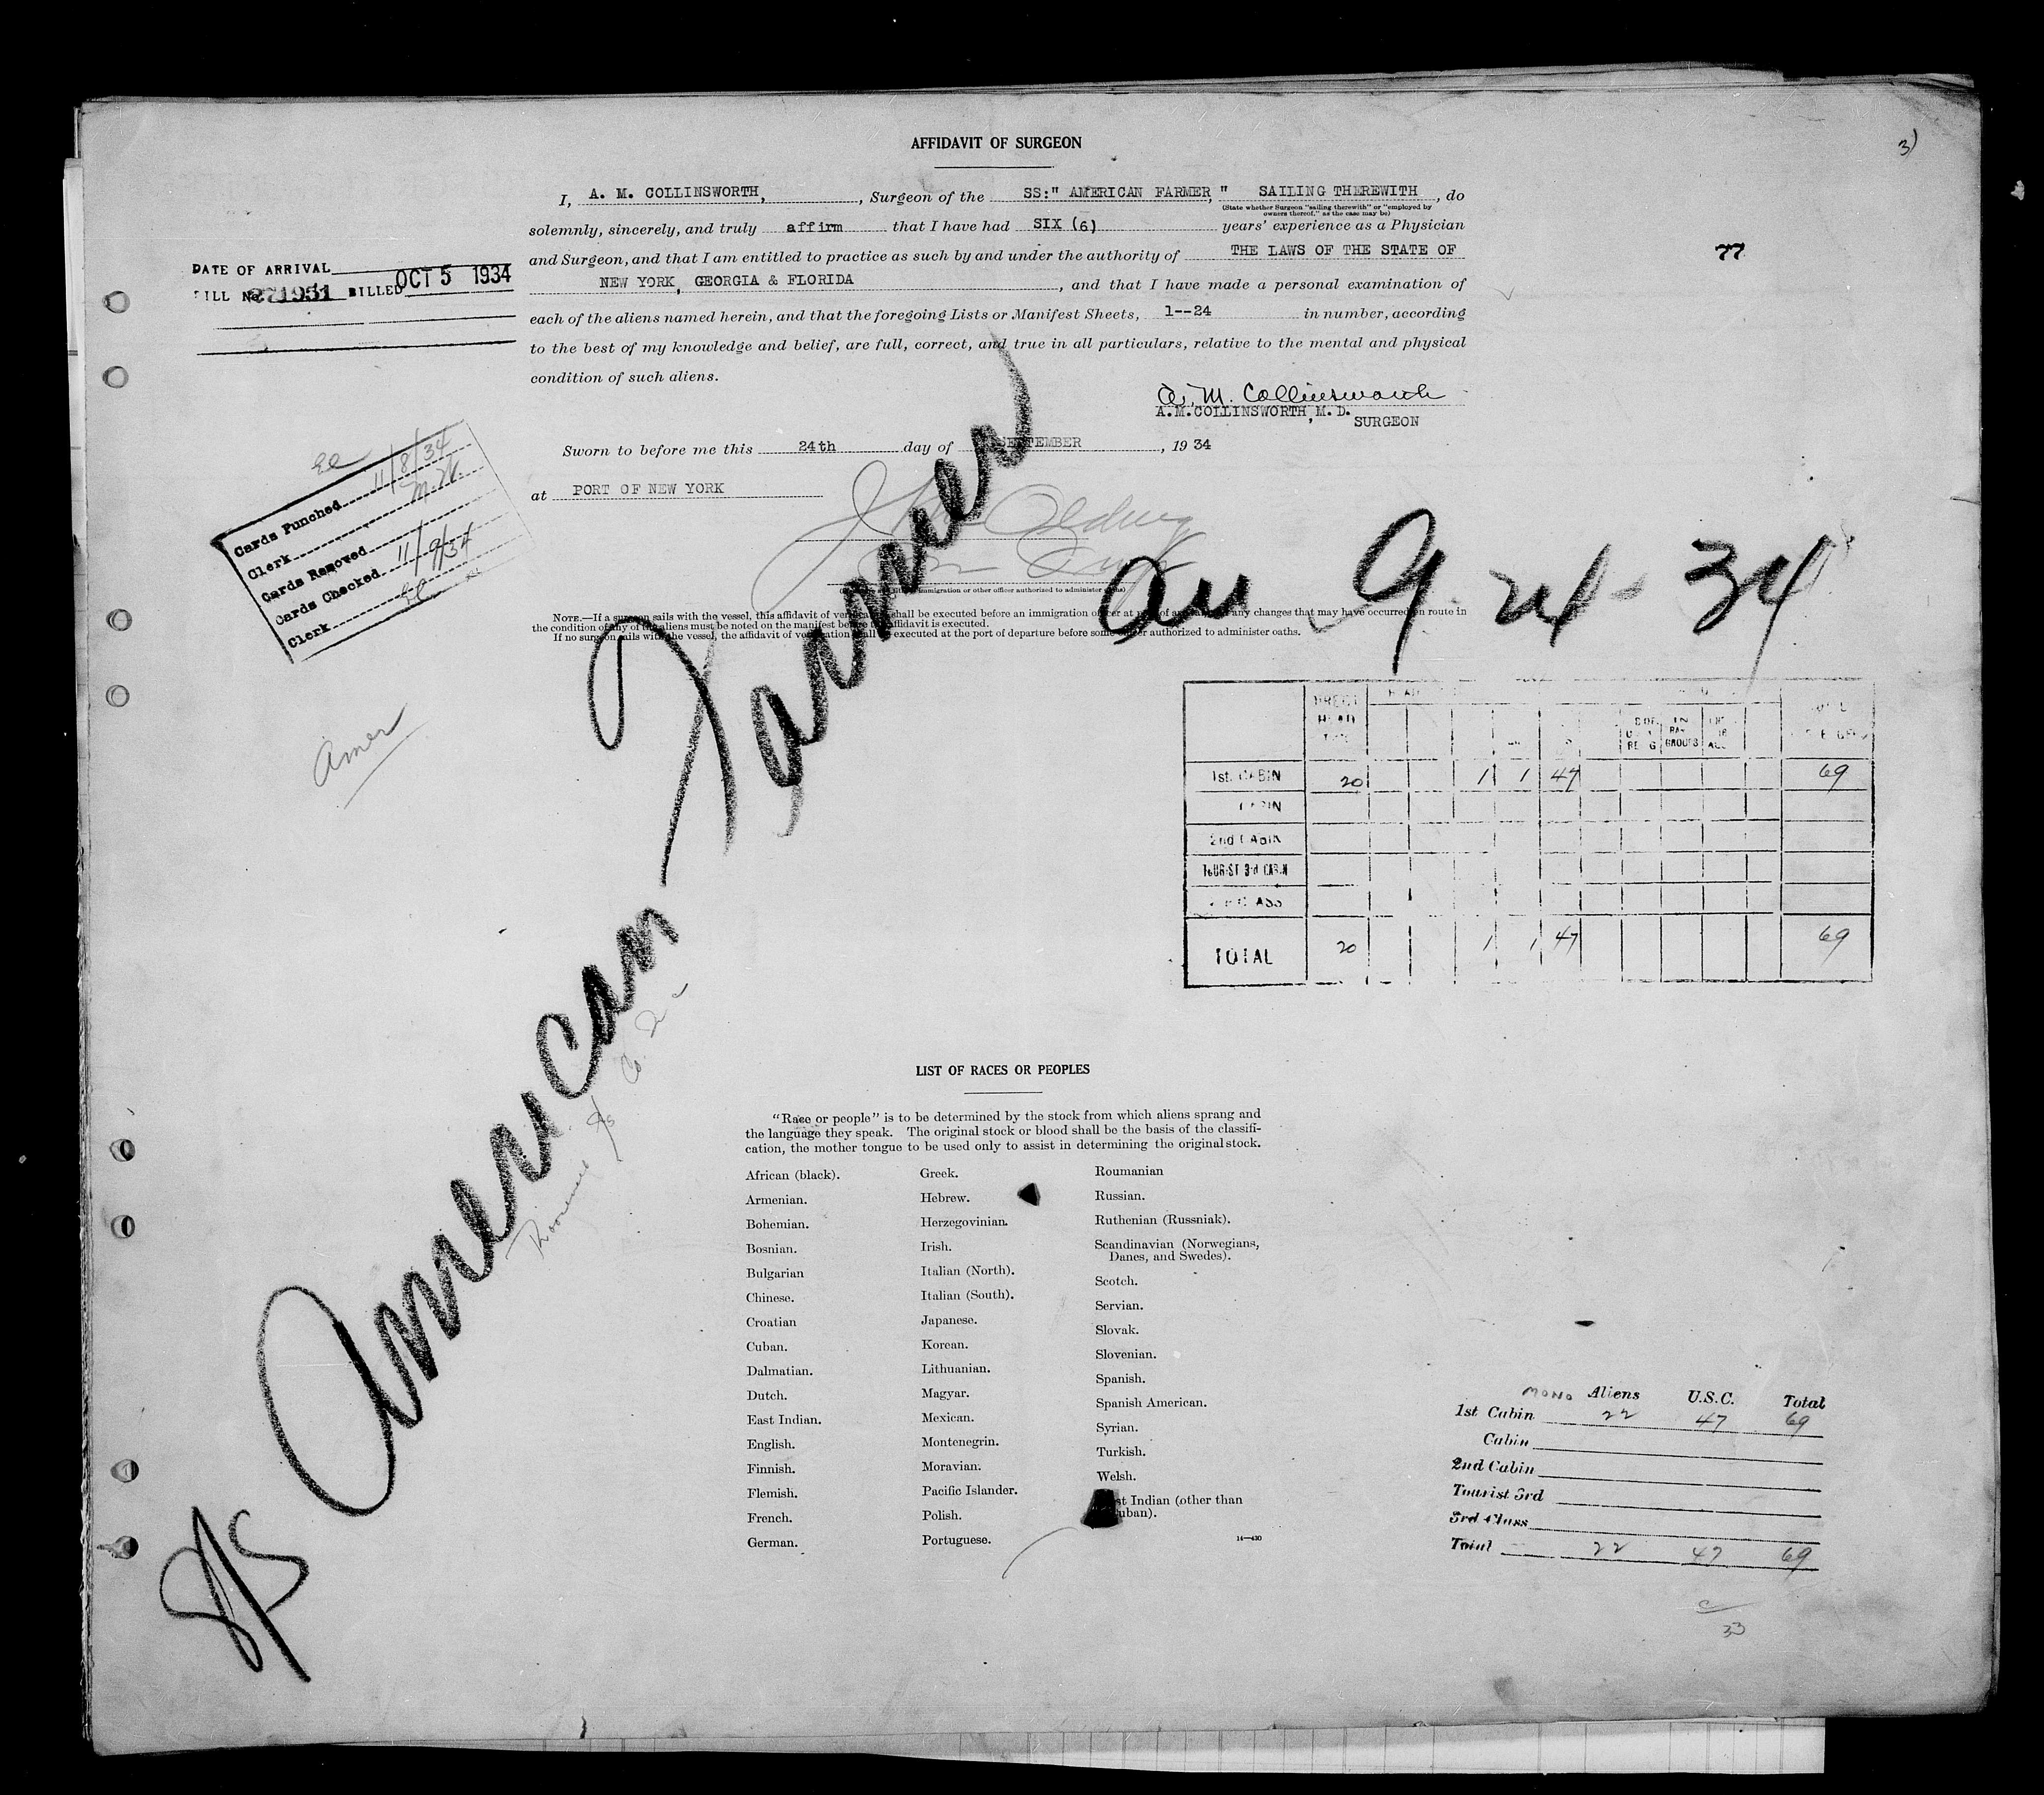 3)
AFFIDAVIT OF SURGEON
I, A. M. COLLINSWORTH, , Surgeon of the SS:" AMERICAN FARMER, " SAILING THEREWITH , do
(State whether Surgeon "sailing therewith" or "employed by
owners thereof," as the case may be)
solemnly, sincerely, and truly affirm that I have had SIX (6) years' experience as a Physician
and Surgeon, and that I am entitled to practice as such by and under the authority of THE LAWS OF THE STATE OF
NEW YORK, GEORGIA & FLORIDA , and that I have made a personal examination of
each of the aliens named herein, and that the foregoing Lists or Manifest Sheets, 1--24 in number, according
to the best of my knowledge and belief, are full, correct, and true in all particulars, relative to the mental and physical
condition of such aliens.
77
DATE OF ARRIVAL
BILL No. 271951 BILLED OCT 5 1934
A. M. Collinsworth
A.M.COLLINSWORTH, M.D.
SURGEON
Sworn to before me this 24th day of SEPTEMBER , 19 34
at PORT OF NEW YORK
Cards Punched 11/8/34
Clerk
Cards Removed
Cards Checked 11/9/34
Clerk
immigration or other officer authorized to administer
NOTE.—If a surgeon sails with the vessel, this affidavit of shall be executed before an immigration officer at of any changes that may have occurred en route in
the condition of any of the aliens must be noted on the manifest before affidavit is executed.
If no surgeon sails with the vessel, the affidavit of verification shall be executed at the port of departure before some officer authorized to administer oaths.
S/S American Farmer
arr 9-24-34
Amer
Roosevelt SS Co.
DIRECT HEAD TAX
IN GROUPS
1st. CABIN 20 1 1 47 69
CABIN
2nd CABIN
TOURIST 3rd CABIN
TOTAL 20 1 1 47 69
LIST OF RACES OR PEOPLES
"Race or people" is to be determined by the stock from which aliens sprang and
the language they speak. The original stock or blood shall be the basis of the classifi-
cation, the mother tongue to be used only to assist in determining the original stock.
African (black).
Armenian.
Bohemian.
Bosnian.
Bulgarian
Chinese.
Croatian
Cuban.
Dalmatian.
Dutch.
East Indian.
English.
Finnish.
Flemish.
French.
German.
Greek.
Hebrew.
Herzegovinian.
Irish.
Italian (North).
Italian (South).
Japanese.
Korean.
Lithuanian.
Magyar.
Mexican.
Montenegrin.
Moravian.
Pacific Islander.
Polish.
Portuguese.
Roumanian
Russian.
Ruthenian (Russniak).
Scandinavian (Norwegians,
Danes, and Swedes).
Scotch.
Servian.
Slovak.
Slovenian.
Spanish.
Spanish American.
Syrian.
Turkish.
Welsh.
st Indian (other than
uban).
14—430
MONO Aliens U.S.C. Total
1st Cabin 22 47 69
Cabin
2nd Cabin
Tourist 3rd
3rd Class
Total 22 47 69
33